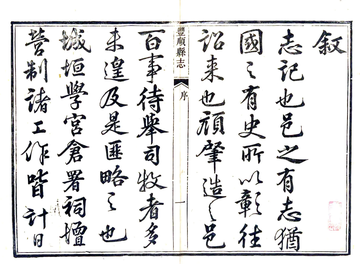 叙
志記也邑之有志猶
國之有史所以彰往
詔来也頋肇造之邑
豐順縣志
序
一
百事待舉司牧者多
未遑及是匪略之也
城垣學宫倉署祠壇
營制諸工作皆計日